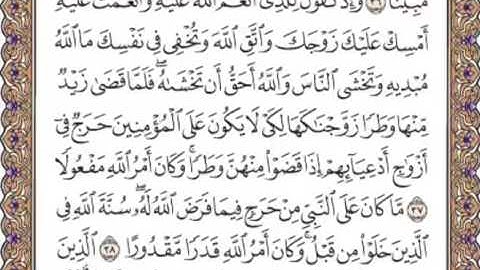 مُّبِينًا ٣٦ وَإِذْ تَقُولُ لِلَّذِىٓ أَنْعَمَ ٱللَّهُ عَلَيْهِ وَأَنْعَمْتَ عَلَيْهِ
أَمْسِكْ عَلَيْكَ زَوْجَكَ وَٱتَّقِ ٱللَّهَ وَتُخْفِى فِى نَفْسِكَ مَا ٱللَّهُ
مُبْدِيهِ وَتَخْشَى ٱلنَّاسَ وَٱللَّهُ أَحَقُّ أَن تَخْشَىٰهُ ۖ فَلَمَّا قَضَىٰ زَيْدٌ
مِّنْهَا وَطَرًا زَوَّجْنَٰكَهَا لِكَىْ لَا يَكُونَ عَلَى ٱلْمُؤْمِنِينَ حَرَجٌ فِىٓ
أَزْوَٰجِ أَدْعِيَآئِهِمْ إِذَا قَضَوْا۟ مِنْهُنَّ وَطَرًا ۚ وَكَانَ أَمْرُ ٱللَّهِ مَفْعُولًا
٣٧ مَّا كَانَ عَلَى ٱلنَّبِىِّ مِنْ حَرَجٍ فِيمَا فَرَضَ ٱللَّهُ لَهُۥ ۖ سُنَّةَ ٱللَّهِ فِى
ٱلَّذِينَ خَلَوْا۟ مِن قَبْلُ ۚ وَكَانَ أَمْرُ ٱللَّهِ قَدَرًا مَّقْدُورًا ٣٨ ٱلَّذِينَ